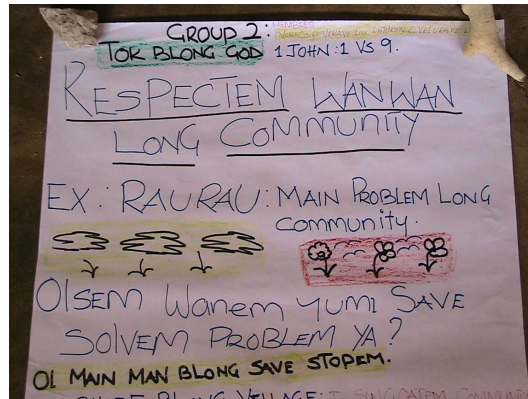 GROUP 2:
TOK BLONG GOD 1 JOHN:1 VS 9.
RESPECTEM WANWAN
LONG COMMUNITY
EX: RAURAU: MAIN PROBLEM LONG
community.
OLSEM Wanem yumi SAVE
SOLVEM PROBLEM YA?
OL MAIN MAN BLONG SAVE STOPEM.